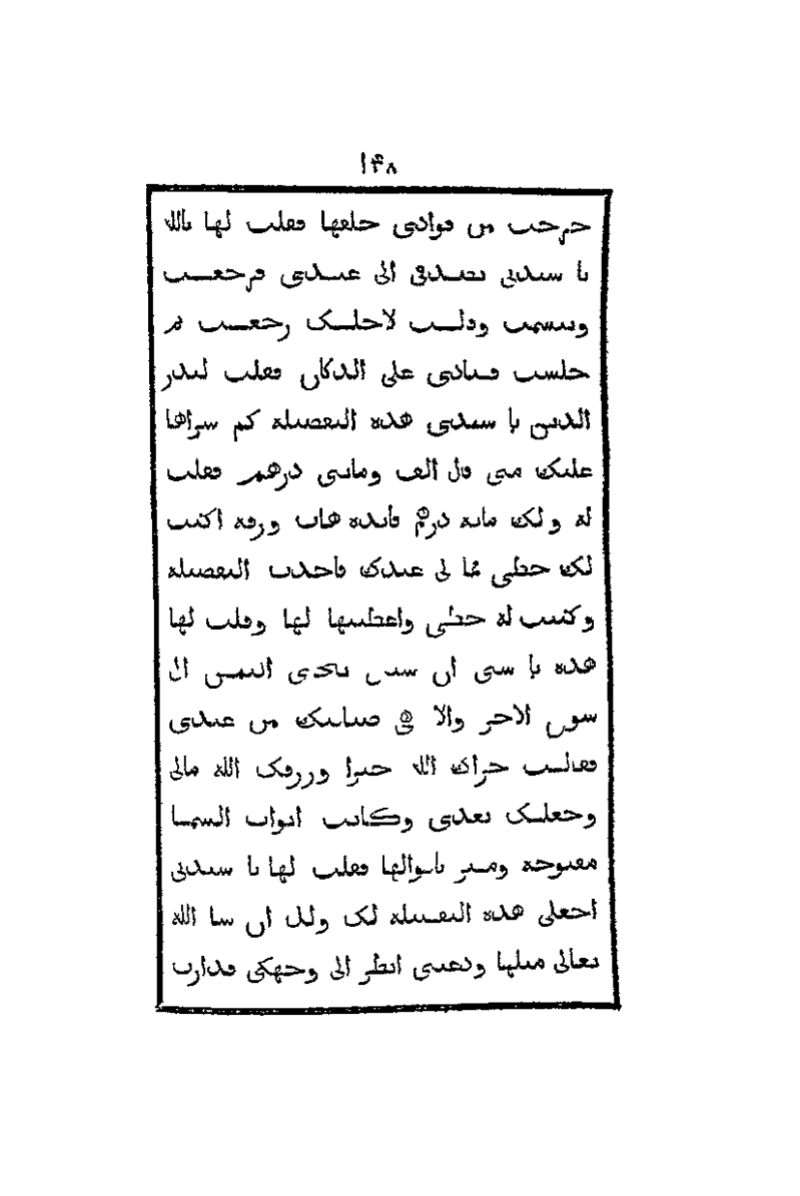 ١٤٨
خرجت من فوادي خلفها فقلت لها بالله
يا سيدتي تصدقي الى عندي فرجعت
وتبسمت وقالت لاجلك رجعت ثم
جلست قبالي على الدكان فقلت لبدر
الدين يا سيدي هذه التفصيله كم شراها
عليك مني قال الف ومايتي درهم فقلت
له ولك مايه درهم فايده هات ورقه اكتب
لك خطي بما لي عندك فاخدت التفصيله
وكتبت له خطي واعطيتها لها وقلت لها
هده يا ستي ان شيتي تجي الثمن الى
سوق الاخر والا هي ضيافتك من عندي
فقالت جزاك الله خيرا ورزقك الله مالي
وجعلك بعدي وكانت ابواب السما
مفتوحه ومصر باموالها فقلت لها يا سيدتي
اجعلي هده التفصيله لك ولك ان شا الله
تعالى مثلها ودعيني انظر الى وجهكي فدارت